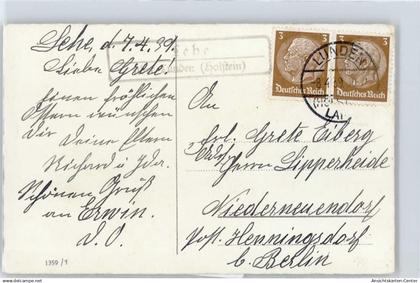 Lehe, d. 7.4.39.
Liebe Grete!
Einen fröhlichen
Ostern wünschen
Dir Deine Eltern
Richard u.
Schönen Gruß
an Erwin.
D. O.
Lehe
Lunden (Holstein)
3 Deutsches Reich
3 Deutsches Reich
LUNDEN
An
Frl. Grete Eiberg
Herrn Lipperheide
Niederneuendorf
Post. Hennigsdorf
b. Berlin
1359/1
Ansichtskarten-Center